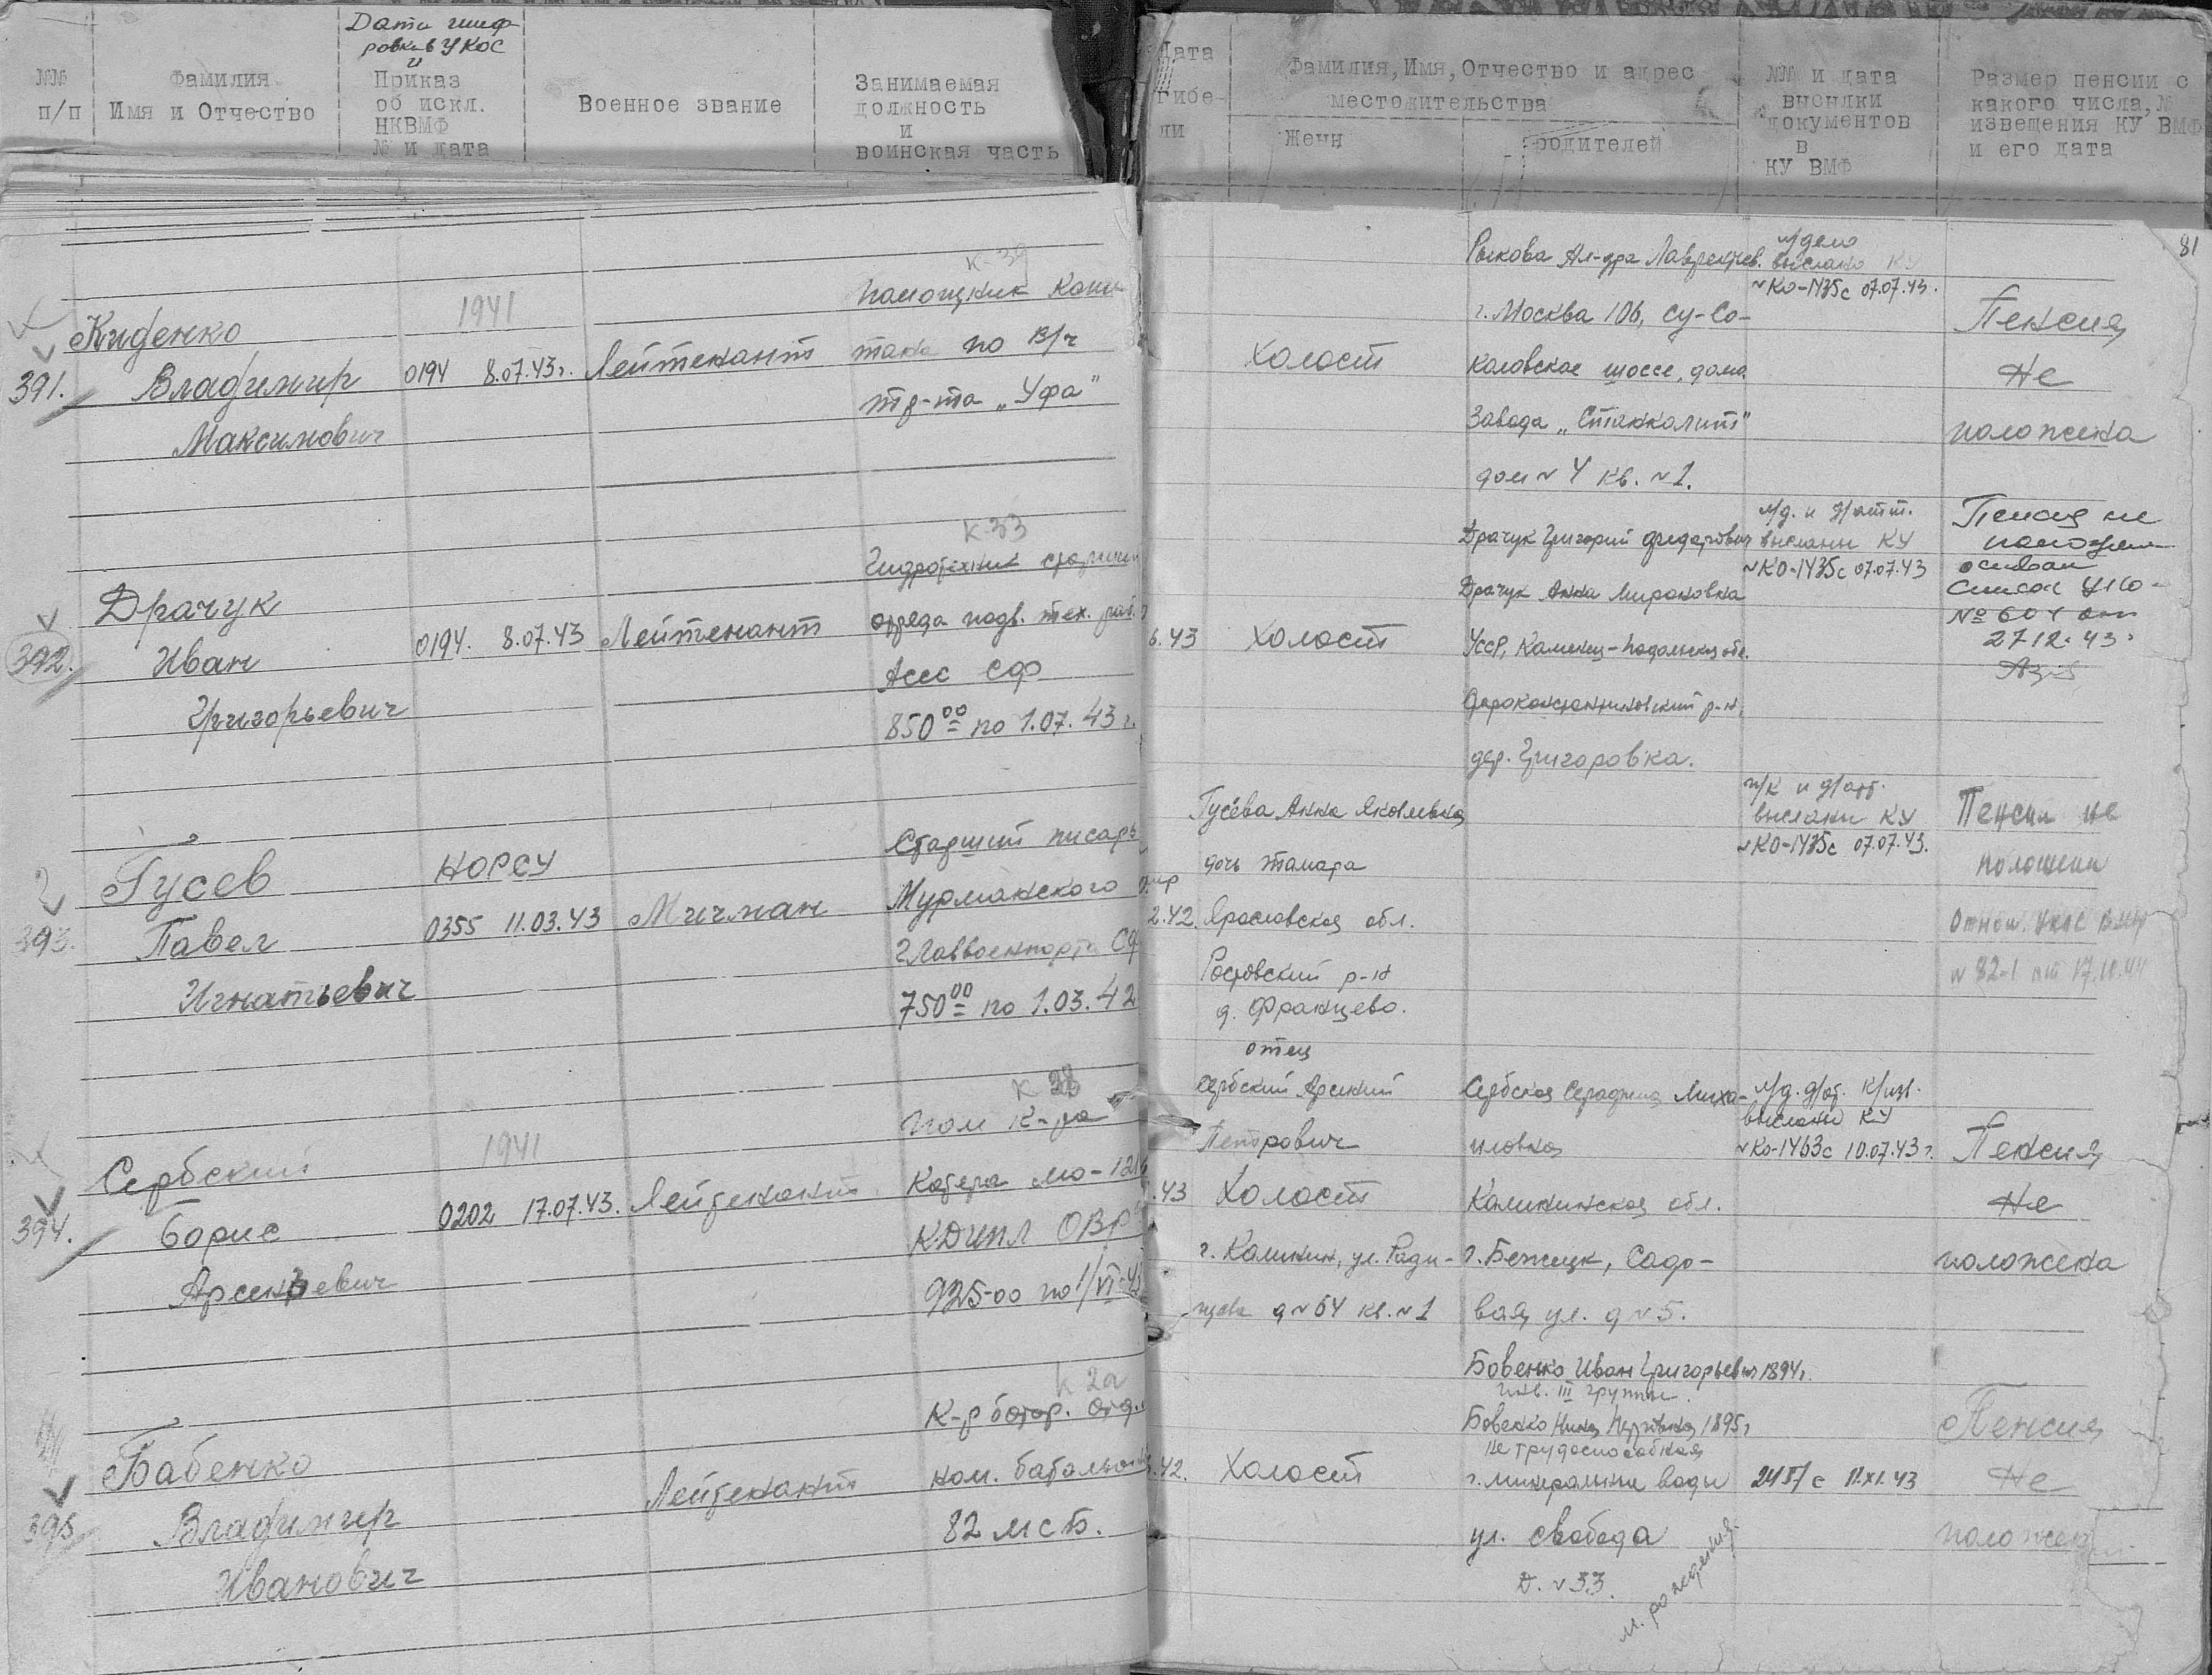 Дата шиф-
ровки в УКОС
и
№№
п/п
Фамилия
Имя и Отчество
Приказ
об искл.
НКВМФ
№ и дата
Военное звание
Занимаемая
должность
и
воинская часть
Дата
гибе-
ли
Фамилия, Имя, Отчество и адрес
местожительства
Жены
родителей
№№ и дата
высылки
документов
в
КУ ВМФ
Размер пенсии с
какого числа, №
извещения КУ ВМФ
и его дата
81
391.
Киденко
Владимир
Максимович
1941
0194 8.07.43г.
Лейтенант
помощник капи
тана по в/ч
тр-та „Уфа"
Холост
Рыкова Ал-дра Лаврентьев.
г. Москва 106, Су-Со-
коловское шоссе, дома
Завода „Станколит"
дом № 4 кв. № 1.
л/дело
выслано КУ
№ КО-1435с 07.07.43.
Пенсия
Не
положена
392.
Драчук
Иван
Григорьевич
0194. 8.07.43
Лейтенант
К-33
Гидротехник
отряда подв. тех. раб.
АСС СФ
850 00 по 1.07.43 г.
6.43
Холост
Драчук Григорий Федорович
Драчук Анна Мироновна
УССР, Каменец-Подольская обл.
Староконстантиновский р-н,
дер. Григоровка.
л/д. и д/атт.
высланы КУ
№ КО-1435с 07.07.43
Пенсия не
положена
основан
список
№ 604 от
2712.43.
393.
Гусев
Павел
Игнатьевич
НОРСУ
0355 11.03.43
Мичман
Старший писарь
Мурманского
Главвоенпорта СФ
750 00 по 1.03.42
2.42.
Гусева Анна Яковлевна
дочь Тамара
Ярославская обл.
Ростовский р-н
д. Францево.
высланы КУ
№ КО-1435с 07.07.43.
Пенсии не
положены
Отнош. УКОС ВМФ
№ 82-1 от 17.10.44
394.
Сербский
Борис
Арсеньевич
1941
0202 17.07.43.
Лейтенант
пом к-ра
Катера МО-121
ОВР
925-00 по 1/VI-43
.43
отец
Сербский Арсений
Петрович
Холост
г. Калинин, ул. Ради-
щева д № 64 кв. № 1
Сербская Серафима Миха-
иловна
Калининская обл.
г. Бежецк, Садо-
вая ул. д № 5.
высланы КУ
№ КО-1463с 10.07.43 г.
Пенсия
Не
положена
395
Бабенко
Владимир
Иванович
Лейтенант
К 2а
К-р
82 МСБ.
.42.
Холост
Бовенко Иван Григорьевич 1894г.
инв. III группы.
Бовенко 1895г
не трудоспособная
г. минеральные воды
ул. свобода
д. № 33.
м. рождения
с 11.XI.43
Пенсия
Не
положен